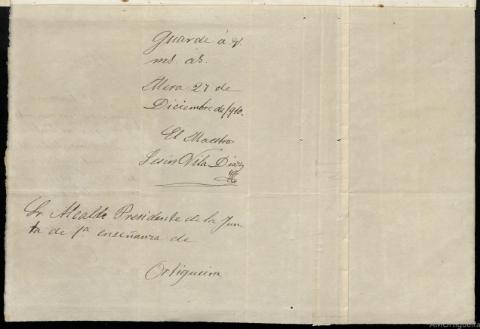 Guarde á V.
ms as.
Mera 27 de
Diciembre de 1910.
El Maestro
Jesús Vila Díaz
Sr. Alcalde Presidente de la Jun-
ta de 1ª enseñanza de
Ortigueira
AMOrtigueira